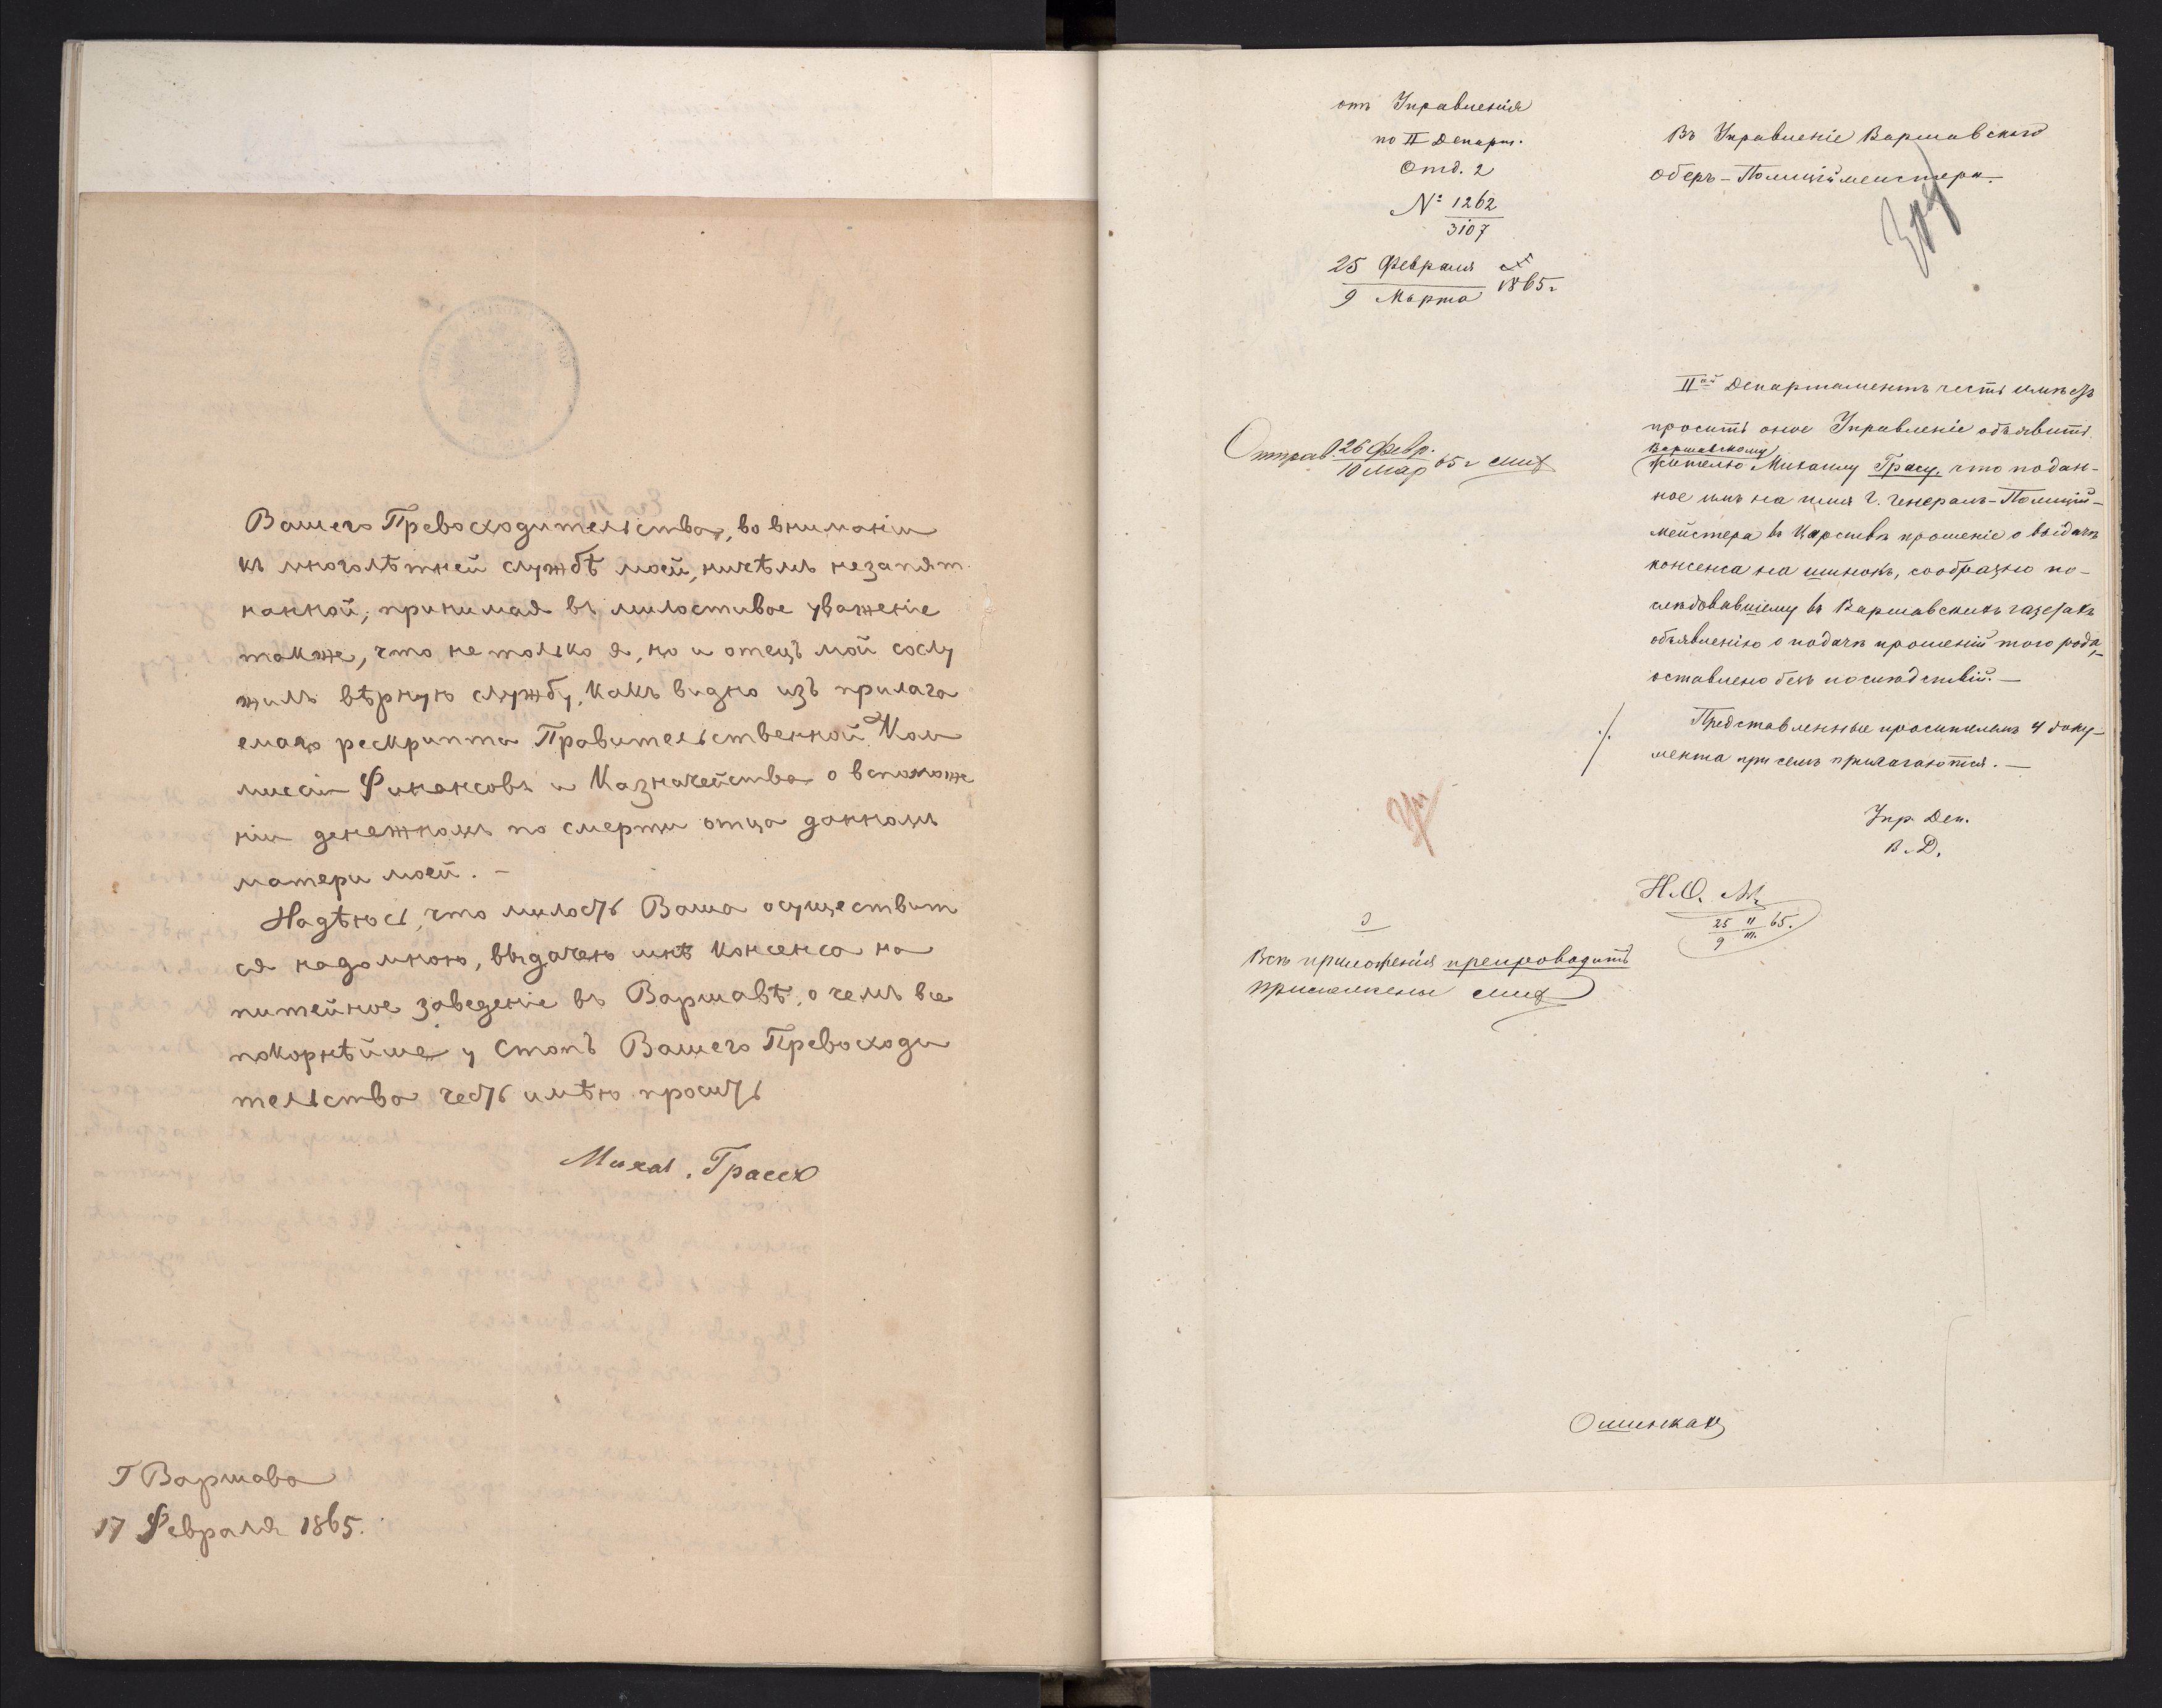 Вашего Превосходительства, во вниманіи
къ многолѣтней службѣ моей, ничѣмъ незапят
нанной, принимая въ милостивое уваженіе
также, что не только я, но и отецъ мой сослу
жилъ вѣрную службу, какъ видно изъ прилага
емаго рескрипта Правительственной Ком
мисіи Финансовъ и Казначейства о вспоможе
ніи денежномъ по смерти отца данномъ
матери моей. –
Надѣюсь, что милость Ваша осуществит
ся надомною, выдачею мнѣ консенса на
питейное заведеніе въ Варшавѣ, о чемъ все
покорнѣйше у стопъ Вашего Превосходи
тельства честь имѣю просить
Михал. Грассъ
Г Варшава
17 Февраля 1865.
отъ Управленія
по II Департ.
Отд. 2
№ 1262
3107
25 Февраля
9 Марта 1865 г
Отправ. 26 Февр.
10 Мар 65 г
Всѣ приложенія препроводить
Въ Управленіе Варшавскаго
Оберъ-Полиціймейстера.
IIой Департаментъ честь имѣетъ
просить оное Управленіе объявить
Варшавскому
жителю Михаилу Грасу, что подан-
ное имъ на имя Г. Генералъ-Полицій-
мейстера въ Царствѣ прошеніе о выдачѣ
консенса на шинокъ, сообразно по-
слѣдовавшему въ Варшавскихъ газетахъ
объявленію о подачѣ прошеній того рода,
оставлено безъ послѣдствій. —
Представленные просителемъ 4 доку-
мента при семъ прилагаются. —
Упр. Деп.
В. Д.
Н. О.
25 II 65.
9 III.